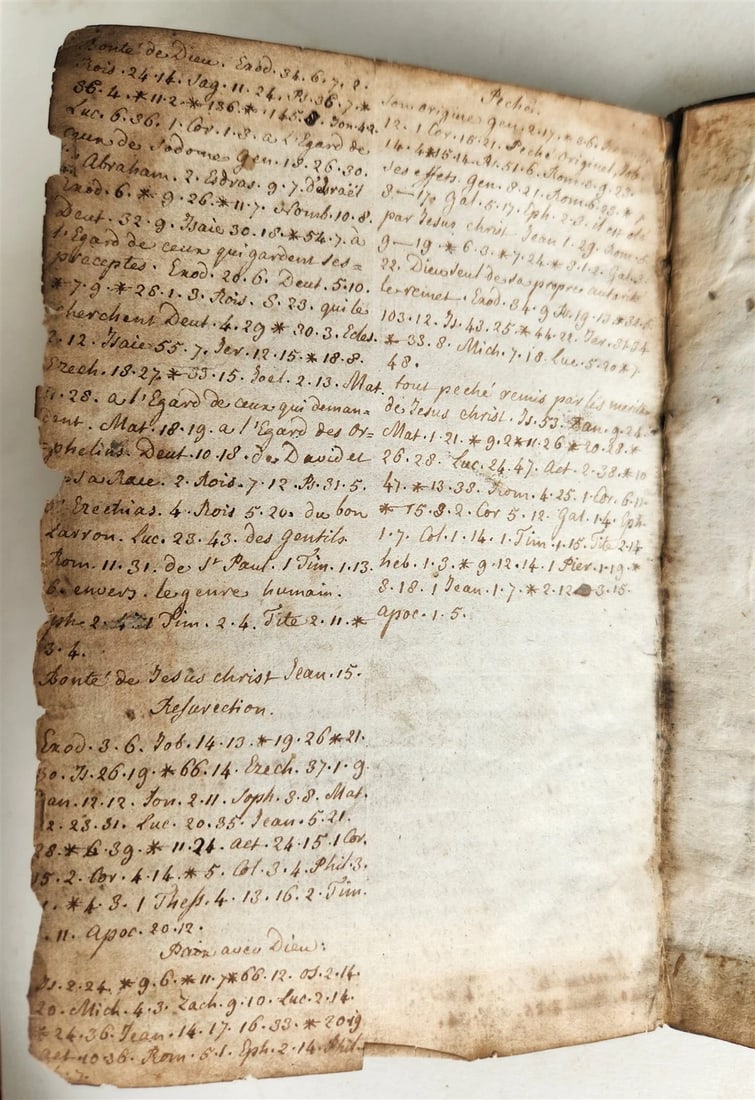 Bonté de Dieu. Exod. 34. 6. 7. 2.
Rois. 24. 14. Sag. 11. 24. Ps. 36. 7. *
36. 4. * 11. 2. * 136. * 145. 8. Jon. 4. 2.
Luc. 6. 36. 1. Cor. 1. 3. a l'Egard de
ceux de Sodome Gen. 18. 26. 30.
Abraham. 2. Esdras. 9. 7. d'israël
Exod. 6. * 9. 26. * 11. 7. Nomb. 10. 8.
Deut. 32. 9. Isaie 30. 18. * 54. 7. à
l'Egard de ceux qui gardent ses =
préceptes. Exod. 20. 6. Deut. 5. 10.
* 7. 9. * 28. 1. 3. Rois. 8. 23. qui le
cherchent Deut. 4. 29 * 30. 3. Ecles.
2. 12. Isaie 55. 7. Jer. 12. 15 * 18. 8.
Ezech. 18. 27. * 33. 15. Joel. 2. 13. Mat.
11. 28. a l'Egard de ceux qui deman=
dent. Mat. 18. 19. a l'Egard des Or=
phelins. Deut. 10. 18. de David et
sa Race. 2. Rois. 7. 12. Ps. 31. 5.
d'Ezechias. 4. Rois 5. 20. du bon
Larron. Luc. 23. 43. des Gentils.
Rom. 11. 31. de St Paul. 1 Tim. 1. 13.
6. envers. le genre humain.
Eph. 2. 4. 1 Tim. 2. 4. Tite 2. 11. *
3. 4.
Bonté de Jesus christ Jean. 15.
Resurection.
Exod. 3. 6. Job. 14. 13. * 19. 26 * 21.
30. Is. 26. 19. * 66. 14. Ezech. 37. 1. 9
Dan. 12. 12. Jon. 2. 11. Soph. 3. 8. Mat.
22. 23. 31. Luc. 20. 35. Jean. 5. 21.
28. * 6. 39. * 11. 24. Act. 24. 15. 1 Cor.
15. 2. Cor. 4. 14. * 5. Col. 3. 4. Phil. 3.
* 4. 3. 1 Thess. 4. 13. 16. 2. Tim.
. 11. Apoc. 20. 12.
Paix avec Dieu:
Is. 2. 24. * 9. 6. * 11. 7 * 66. 12. Os. 2. 14.
20. Mich. 4. 3. Zach. 9. 10. Luc. 2. 14.
* 24. 36. Jean. 14. 17. 16. 33. * 20. 19
Act. 10. 36. Rom. 5. 1. Eph. 2. 14. Phil.
4. 7.
Peché.
son origine gen. 2. 17. * 3. 6.
12. 1 Cor. 15. 21. Peché Originel, Job.
14. 4 * 15. 14. Ps. 51. 6. Rom. 5. 9. 23.
Ses effets. Gen. 8. 21. Rom. 6. 23. *
8 — 17. Gal. 5. 17. Eph. 2. 8. il est oté
par Jesus christ Jean 1. 29. Rom. 5.
9 — 19. * 6. 3. * 7. 24. * 8. 1. 2. Gal. 3.
22. Dieu seul de sa propre autorité
le remet. Exod. 34. 9. Ps. 19. 13 *
103. 12. Is. 43. 25. * 44. 22. Jer. 31. 34
* 33. 8. Mich. 7. 18. Luc. 5. 20 * 7.
48.
tout peché remis par les merites
de Jesus christ. Is. 53. Dan. 9. 24.
Mat. 1. 21. * 9. 2 * 11. 26 * 20. 28. *
26. 28. Luc. 24. 47. Act. 2. 38. * 10
47. * 13. 38. Rom. 4. 25. 1. Cor. 6. 11.
* 15. 3. 2. Cor 5. 12. Gal. 1. 4. Eph.
1. 7. Col. 1. 14. 1. Tim. 1. 15. Tite 2. 14
heb. 1. 3. * 9. 12. 14. 1 Pier. 1. 19. *
3. 18. 1 Jean. 1. 7. * 2. 12 3. 15.
apoc. 1. 5.